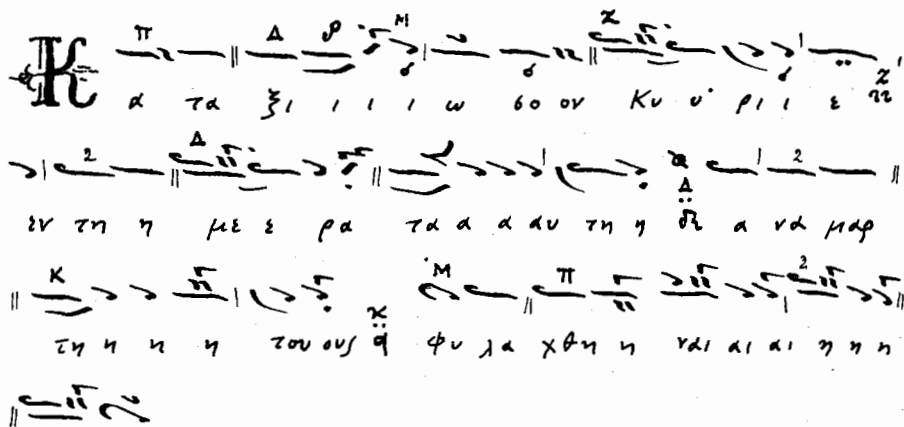 Π Δ Μ Ζ
Κ α τα ξι ι ι ι ω σο ον Κυ υ ρι ι ε Ζ
2 Δ 2
εν τη η με ε ρα τα α α αυ τη η Δ α να μαρ
Κ Μ Π 2
τη η η η του ους κ φυ λα χθη η ναι αι αι η η η